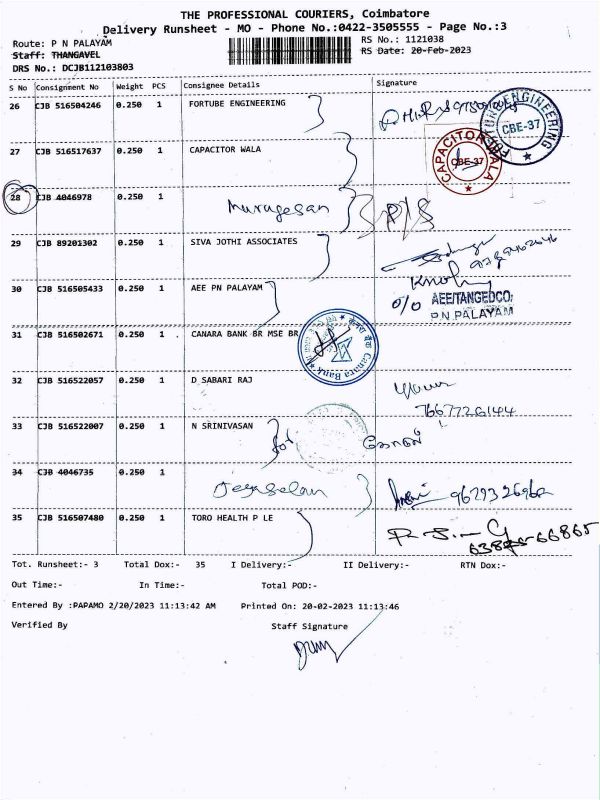 THE PROFESSIONAL COURIERS, Coimbatore
Delivery Runsheet - MO - Phone No.:0422-3505555 - Page No.:3
Route: P N PALAYAM
RS No.: 1121038
Staff: THANGAVEL
RS Date: 20-Feb-2023
DRS No.: DCJB112103803
S No Consignment No Weight PCS Consignee Details Signature
26 CJB 516504246 0.250 1 FORTUBE ENGINEERING
CBE-37
27 CJB 516517637 0.250 1 CAPACITOR WALA
CAPACITOR WALA
CBE-37
28 CJB 4046978 0.250 1 Murugesan P/S
29 CJB 89201302 0.250 1 SIVA JOTHI ASSOCIATES
30 CJB 516505433 0.250 1 AEE PN PALAYAM
O/O AEE/TANGEDCO:
P.N PALAYAM
31 CJB 516502671 0.250 1 . CANARA BANK BR MSE BR
Canara Bank
32 CJB 516522057 0.250 1 D SABARI RAJ
7667726144
33 CJB 516522007 0.250 1 N SRINIVASAN
34 CJB 4046735 0.250 1 Jeyaselan
9629326962
35 CJB 516507480 0.250 1 TORO HEALTH P LE
Tot. Runsheet:- 3 Total Dox:- 35 I Delivery:- II Delivery:- RTN Dox:-
Out Time:- In Time:- Total POD:-
Entered By :PAPAMO 2/20/2023 11:13:42 AM Printed On: 20-02-2023 11:13:46
Verified By Staff Signature